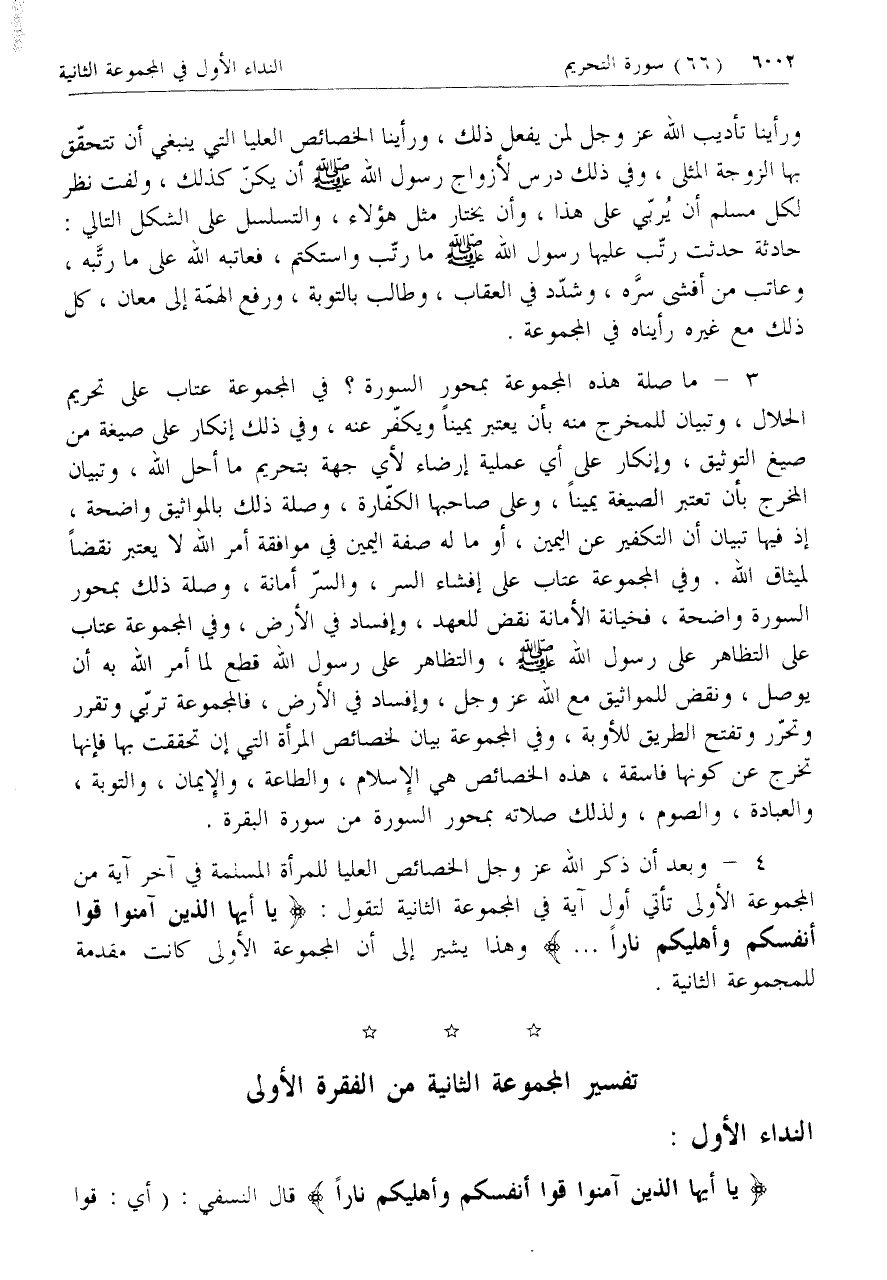 ٦٠٠٢ (٦٦) سورة التحريم النداء الأول في المجموعة الثانية
ورأينا تأديب الله عز وجل لمن يفعل ذلك ، ورأينا الخصائص العليا التي ينبغي أن تتحقّق
بها الزوجة المثلى ، وفي ذلك درس لأزواج رسول الله ﷺ أن يكنّ كذلك ، ولفت نظر
لكل مسلم أن يُربّي على هذا ، وأن يختار مثل هؤلاء ، والتسلسل على الشكل التالي :
حادثة حدثت رتّب عليها رسول الله ﷺ ما رتّب واستكتم ، فعاتبه الله على ما رتَّبه ،
وعاتب من أفشى سرَّه ، وشدّد في العقاب ، وطالب بالتوبة ، ورفع الهمّة إلى معان ، كل
ذلك مع غيره رأيناه في المجموعة .
٣ – ما صلة هذه المجموعة بمحور السورة ؟ في المجموعة عتاب على تحريم
الحلال ، وتبيان للمخرج منه بأن يعتبر يميناً ويكفّر عنه ، وفي ذلك إنكار على صيغة من
صيغ التوثيق ، وإنكار على أي عملية إرضاء لأي جهة بتحريم ما أحل الله ، وتبيان
المخرج بأن تعتبر الصيغة يميناً ، وعلى صاحبها الكفّارة ، وصلة ذلك بالمواثيق واضحة ،
إذ فيها تبيان أن التكفير عن اليمين ، أو ما له صفة اليمين في موافقة أمر الله لا يعتبر نقضاً
لميثاق الله . وفي المجموعة عتاب على إفشاء السر ، والسرّ أمانة ، وصلة ذلك بمحور
السورة واضحة ، فخيانة الأمانة نقض للعهد ، وإفساد في الأرض ، وفي المجموعة عتاب
على التظاهر على رسول الله ﷺ ، والتظاهر على رسول الله قطع لما أمر الله به أن
يوصل ، ونقض للمواثيق مع الله عز وجل ، وإفساد في الأرض ، فالمجموعة تربّي وتقرر
وتحرّر وتفتح الطريق للأوبة ، وفي المجموعة بيان لخصائص المرأة التي إن تحققت بها فإنها
تخرج عن كونها فاسقة ، هذه الخصائص هي الإسلام ، والطاعة ، والإيمان ، والتوبة ،
والعبادة ، والصوم ، ولذلك صلاته بمحور السورة من سورة البقرة .
٤ – وبعد أن ذكر الله عز وجل الخصائص العليا للمرأة المسلمة في آخر آية من
المجموعة الأولى تأتي أول آية في المجموعة الثانية لتقول : ﴿ يا أيها الذين آمنوا قوا
أنفسكم وأهليكم ناراً ... ﴾ وهذا يشير إلى أن المجموعة الأولى كانت مقدمة
للمجموعة الثانية .
☆ ☆ ☆
تفسير المجموعة الثانية من الفقرة الأولى
النداء الأول :
﴿ يا أيها الذين آمنوا قوا أنفسكم وأهليكم ناراً ﴾ قال النسفي : ( أي : قوا